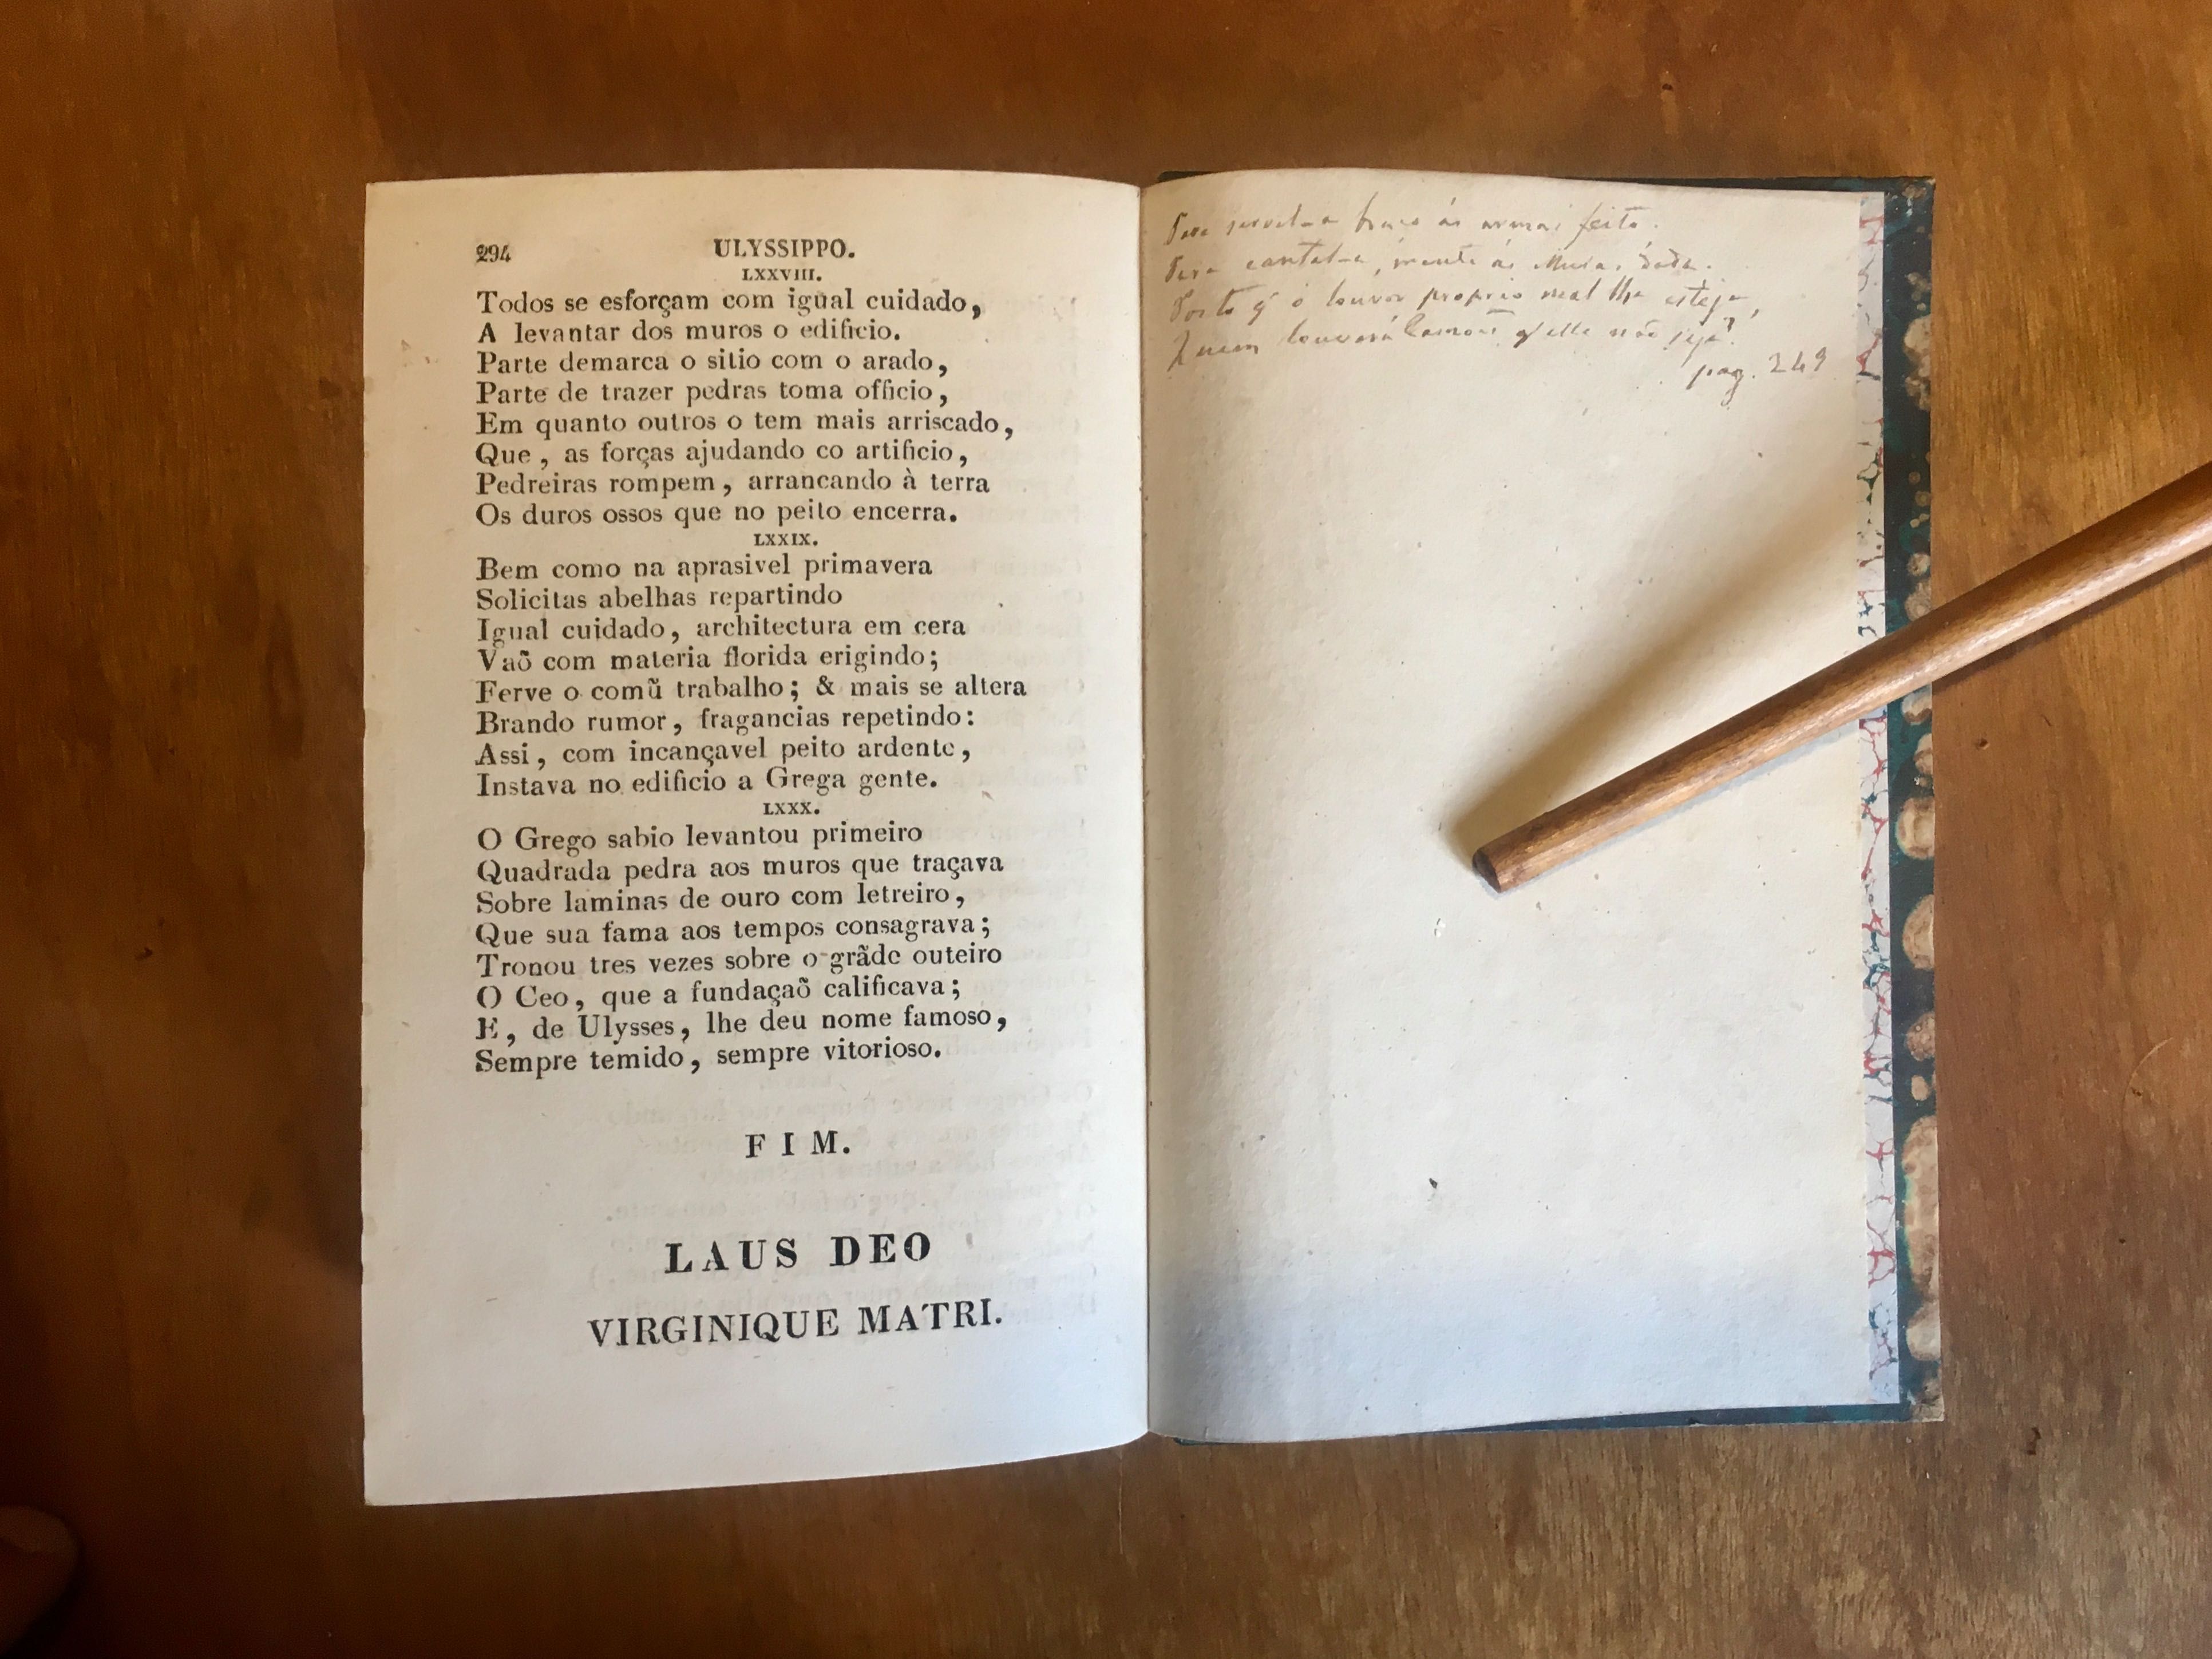 294 ULYSSIPPO.
LXXVIII.
Todos se esforçam com igual cuidado,
A levantar dos muros o edificio.
Parte demarca o sitio com o arado,
Parte de trazer pedras toma officio,
Em quanto outros o tem mais arriscado,
Que, as forças ajudando co artificio,
Pedreiras rompem, arrancando à terra
Os duros ossos que no peito encerra.
LXXIX.
Bem como na aprasivel primavera
Solicitas abelhas repartindo
Igual cuidado, architectura em cera
Vaõ com materia florida erigindo;
Ferve o comũ trabalho; & mais se altera
Brando rumor, fragancias repetindo:
Assi, com incançavel peito ardente,
Instava no edificio a Grega gente.
LXXX.
O Grego sabio levantou primeiro
Quadrada pedra aos muros que traçava
Sobre laminas de ouro com letreiro,
Que sua fama aos tempos consagrava;
Tronou tres vezes sobre o grãde outeiro
O Ceo, que a fundaçaõ calificava;
E, de Ulysses, lhe deu nome famoso,
Sempre temido, sempre vitorioso.
FIM.
LAUS DEO
VIRGINIQUE MATRI.
Pera servil-a braço ás armas feito.
Pera cantal-a, mente ás Musas dada.
Posto q̃ o louvor proprio mal lhe esteja,
Quem louvará Camões q̃ elle não seja?
pag. 249